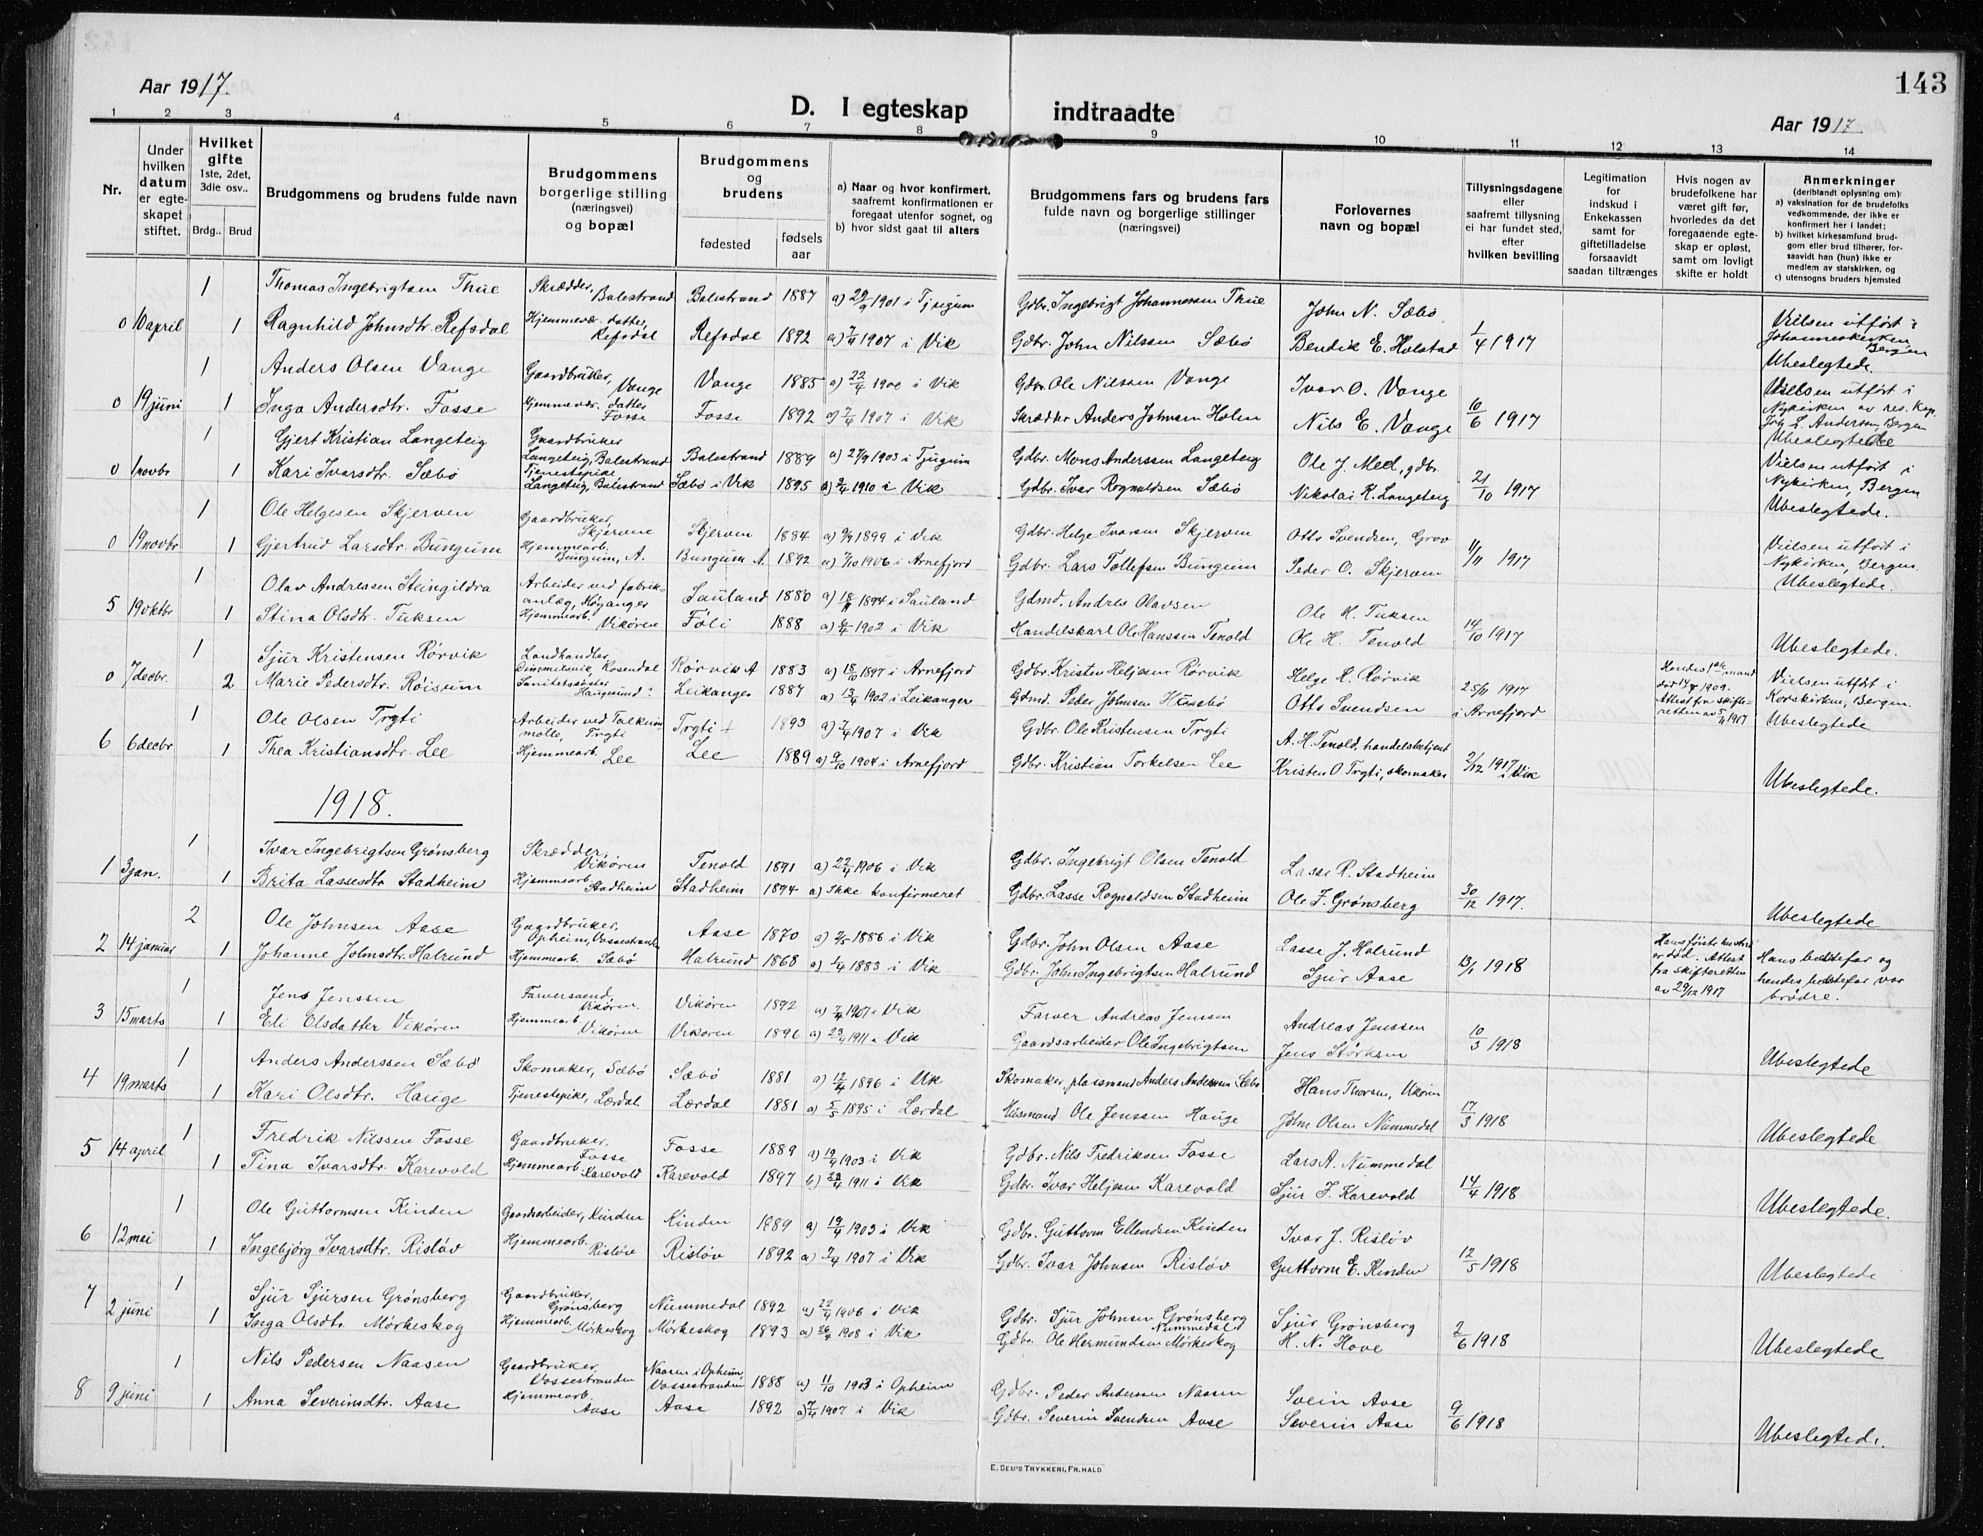 143
Aar 1917.
D. I egteskap indtraadte
Aar 1917
1 2 3 4 5 6 7 8 9 10 11 12 13 14
Nr.
Under hvilken datum er egteskapet stiftet.
Hvilket gifte 1ste, 2det, 3die osv..
Brdg.. Brud
Brudgommens og brudens fulde navn
Brudgommens borgerlige stilling (næringsvei) og bopæl
Brudgommens og brudens
fødested
fødsels aar
a) Naar og hvor konfirmert, saafremt konfirmationen er foregaat utenfor sognet, og
b) hvor sidst gaat til alters
Brudgommens fars og brudens fars fulde navn og borgerlige stillinger (næringsvei)
Forlovernes navn og bopæl
Tillysningsdagene eller saafremt tillysning ei har fundet sted, efter hvilken bevilling
Legitimation for indskud i Enkekassen samt for giftetilladelse forsaavidt saadan tiltrænges
Hvis nogen av brudefolkene har været gift før, hvorledes da det foregaaende egteskap er opløst, samt om lovligt skifte er holdt
Anmerkninger (deriblandt oplysning om):
a) vaksination for de brudefolks vedkommende, der ikke er konfirmert her i landet;
b) hvilket kirkesamfund brudgom eller brud tilhører, forsaavidt han (hun) ikke er medlem av statskirken, og
c) utensogns bruders hjemsted
1 Thomas Ingebrigtsen Thue Skrædder, Balestrand Balestrand 1887 a) 29/9 1901 i Tjugum Gdbr. Ingebrigt Johannessen Thue John N. Sæbø
0 10 april 1 Ragnhild Johnsdtr. Refsdal Hjemmevær. datter, Refsdal Refsdal 1892 a) 7/4 1907 i Vik Gdbr. John Nilssen Sæbø Bendik E. Holstad 1/4 1917 Vielsen utført i Johanneskirken Bergen Ubeslegtede.
1 Anders Olsen Vange Gaardbruker, Vange Vange 1885 a) 22/4 1900 i Vik Gdbr. Ole Nilssen Vange Ivar O. Vange
0 19 juni 1 Inga Andersdtr. Fosse Hjemmevær. datter Fosse Fosse 1892 a) 7/4 1907 i Vik Skrædder Anders Johnsen Holen Nils E. Vange 10/6 1917 Vielsen utført i Nykirken av res. kap. Joh. L. Andersen, Bergen Ubeslegtede
1 Gjert Kristian Langeteig Gaardbruker Langeteig, Balestrand Balestrand 1889 a) 27/9 1903 i Tjugum Gdbr. Mons Anderssen Langeteig Ole J. Med, gdbr.
0 1 novbr 1 Kari Ivarsdtr. Sæbø Tjenestepike Langeteig, Balestrand Sæbø i Vik 1895 a) 3/4 1910 i Vik Gdbr. Ivar Rognaldsen Sæbø Nikolai K. Langeteig 21/10 1917 Vielsen utført i Nykirken, Bergen Ubeslegtede.
1 Ole Helgesen Skjerven Gaardbruker, Skjervene Skjerven 1884 a) 9/4 1899 i Vik Gdbr. Helge Ivarsen Skjerven Otto Svendsen, Grov
0 19 novbr 1 Gjertrud Larsdtr. Bungum Hjemmearb. Bungum, A. Bungum A. 1892 a) 7/10 1906 i Arnefjord Gdbr. Lars Tollefsen Bungum Peder O. Skjerven 11/11 1917 Vielsen utført i Nykirken, Bergen. Ubeslegtede.
1 Olav Andressen Steingildra Arbeider ved fabrikanlæg, Høyanger Sauland 1880 a) 18/11 1894 i Sauland Gdmd. Andres Olavsen Ole H. Tuksen
5 19 oktbr 1 Stina Olsdtr. Tuksen Hjemmearb. Vikøren Føli 1888 a) 6/4 1902 i Vik Handelskarl Ole Hanssen Tenold Ole H. Tenold 14/10 1917 Ubeslegtede.
1 Sjur Kristensen Rørvik Landhandler, Dimmelsvik, Rosendal Rørvik A 1883 a) 18/10 1897 i Arnefjord Gdbr. Kristen Heljesen Rørvik Helge K. Rørvik
0 7 decbr. 2 Marie Pedersdtr. Røisum Sanitetssøster Haugesund Leikanger 1887 a) 13/4 1902 i Leikanger Gdmd. Peder Johnsen Hunsbø Otto Svendsen 25/11 1917 i Arnefjord Hendes 1ste mand død 14/7 1909. Attest fra skifteretten av 5/11 1917 Vielsen utført i Korskirken, Bergen. Ubeslegtede
1 Ole Olsen Trgti Arbeider ved Talkemølle, Trgti Trgti + 1893 a) 7/4 1907 i Vik Gdbr. Ole Kristensen Trgti A. H. Tenold, handelsbetjent
6 6 decbr 1 Thea Kristiansdtr. Lee Hjemmearb. Lee Lee 1889 a) 9/10 1904 i Arnefjord Gdbr. Kristian Torkelsen Lee Kristen O. Trgti, skomaker 2/12 1917 i Vik Ubeslegtede.
1918.
1 Ivar Ingebrigtsen Grønsberg Skrædder, Vikøren Tenold 1891 a) 22/4 1906 i Vik Gdbr. Ingebrigt Olsen Tenold Lasse R. Stadheim
1 3 jan. 1 Brita Lassesdtr Stadheim Hjemmearb. Stadheim Stadheim 1894 a) Ikke konfirmeret Gdbr. Lasse Rognaldsen Stadheim Ole F. Grønsberg 30/12 1917. Ubeslegtede
2 Ole Johnsen Aase Gaardbruker, Opheim, Vossestranden Aase 1870 a) 2/5 1886 i Vik Gdbr. John Olsen Aase Lasse J. Halrund
2 14 januar 1 Johanne Johnsdtr. Halrund Hjemmearb. Sæbø Halrund 1868 a) 1/4 1883 i Vik Gdbr. John Ingebrigtsen Halrund Sjur Aase 13/1 1918 Hans første hustru er død. Attest fra skifteretten av 29/12 1917 Hans bestefar og hendes bestefar var brødre.
1 Jens Jenssen Farversvend, Vikøren Vikøren 1892 a) 7/4 1907 i Vik Farver Andreas Jenssen Andreas Jenssen
3 15 marts 1 Eli Olsdatter Vikøren Hjemmearb. Vikøren Vikøren 1896 a) 23/4 1911 i Vik Gaardsarbeider Ole Ingebrigtsen Jens Størksen 10/3 1918 Ubeslegtede
1 Anders Anderssen Sæbø Skomaker, Sæbø Sæbø 1881 a) 12/4 1896 i Vik Skomaker, plassmand Anders Anderssen Sæbø Hans Thorsen, Vikøren
4 19 marts 1 Kari Olsdtr. Hauge Tjenestepike, Lærdal Lærdal 1881 a) 5/5 1895 i Lærdal Husmand Ole Jenssen Hauge John Olsen Nummedal 17/3 1918 Ubeslegtede
1 Fredrik Nilssen Fosse Gaardbruker, Fosse Fosse 1889 a) 19/4 1903 i Vik Gdbr. Nils Fredriksen Fosse Lars A. Nummedal
5 14 april 1 Tina Ivarsdtr. Karevold Hjemmearb. Karevold Karevold 1897 b) 23/4 1911 i Vik Gdbr. Ivar Heljesen Karevold Sjur J. Karevold 14/4 1918 Ubeslegtede.
1 Ole Guttormsen Kinden Gaardsarbeider, Kinden Kinden 1889 a) 19/4 1903 i Vik Gdbr. Guttorm Ellendsen Kinden Ivar J. Risløv
6 12 mai 1 Ingebjørg Ivarsdtr. Risløv Hjemmearb. Risløv Risløv 1892 a) 7/4 1907 i Vik Gdbr. Ivar Johnsen Risløv Guttorm E. Kinden 12/5 1918 Ubeslegtede
7 1 Sjur Sjursen Grønsberg Gaardbruker, Grønsberg Nummedal 1892 a) 22/4 1906 i Vik Gdbr. Sjur Johnsen Grønsberg Nummedal Sjur Grønsberg
2 juni 1 Inga Olsdtr. Mørkeskog Hjemmearb. Mørkeskog Mørkeskog 1893 a) 26/4 1908 i Vik Gdbr. Ole Hermundsen Mørkeskog H. N. Hove 2/6 1918 Ubeslegtede
1 Nils Pedersen Naasen Gaardbruker, Vossestranden Naasen i Opheim, Vossestranden 1888 a) 11/10 1903 i Opheim Gdbr. Peder Anderssen Naasen Svein Aase
8 9 juni 1 Anna Severinsdtr. Aase Hjemmearb. Aase Aase 1892 a) 7/4 1907 i Vik Gdbr. Severin Svendsen Aase Severin Aase 9/6 1918 Ubeslegtede.
E. SEM'S TRYKKERI, FR.HALD